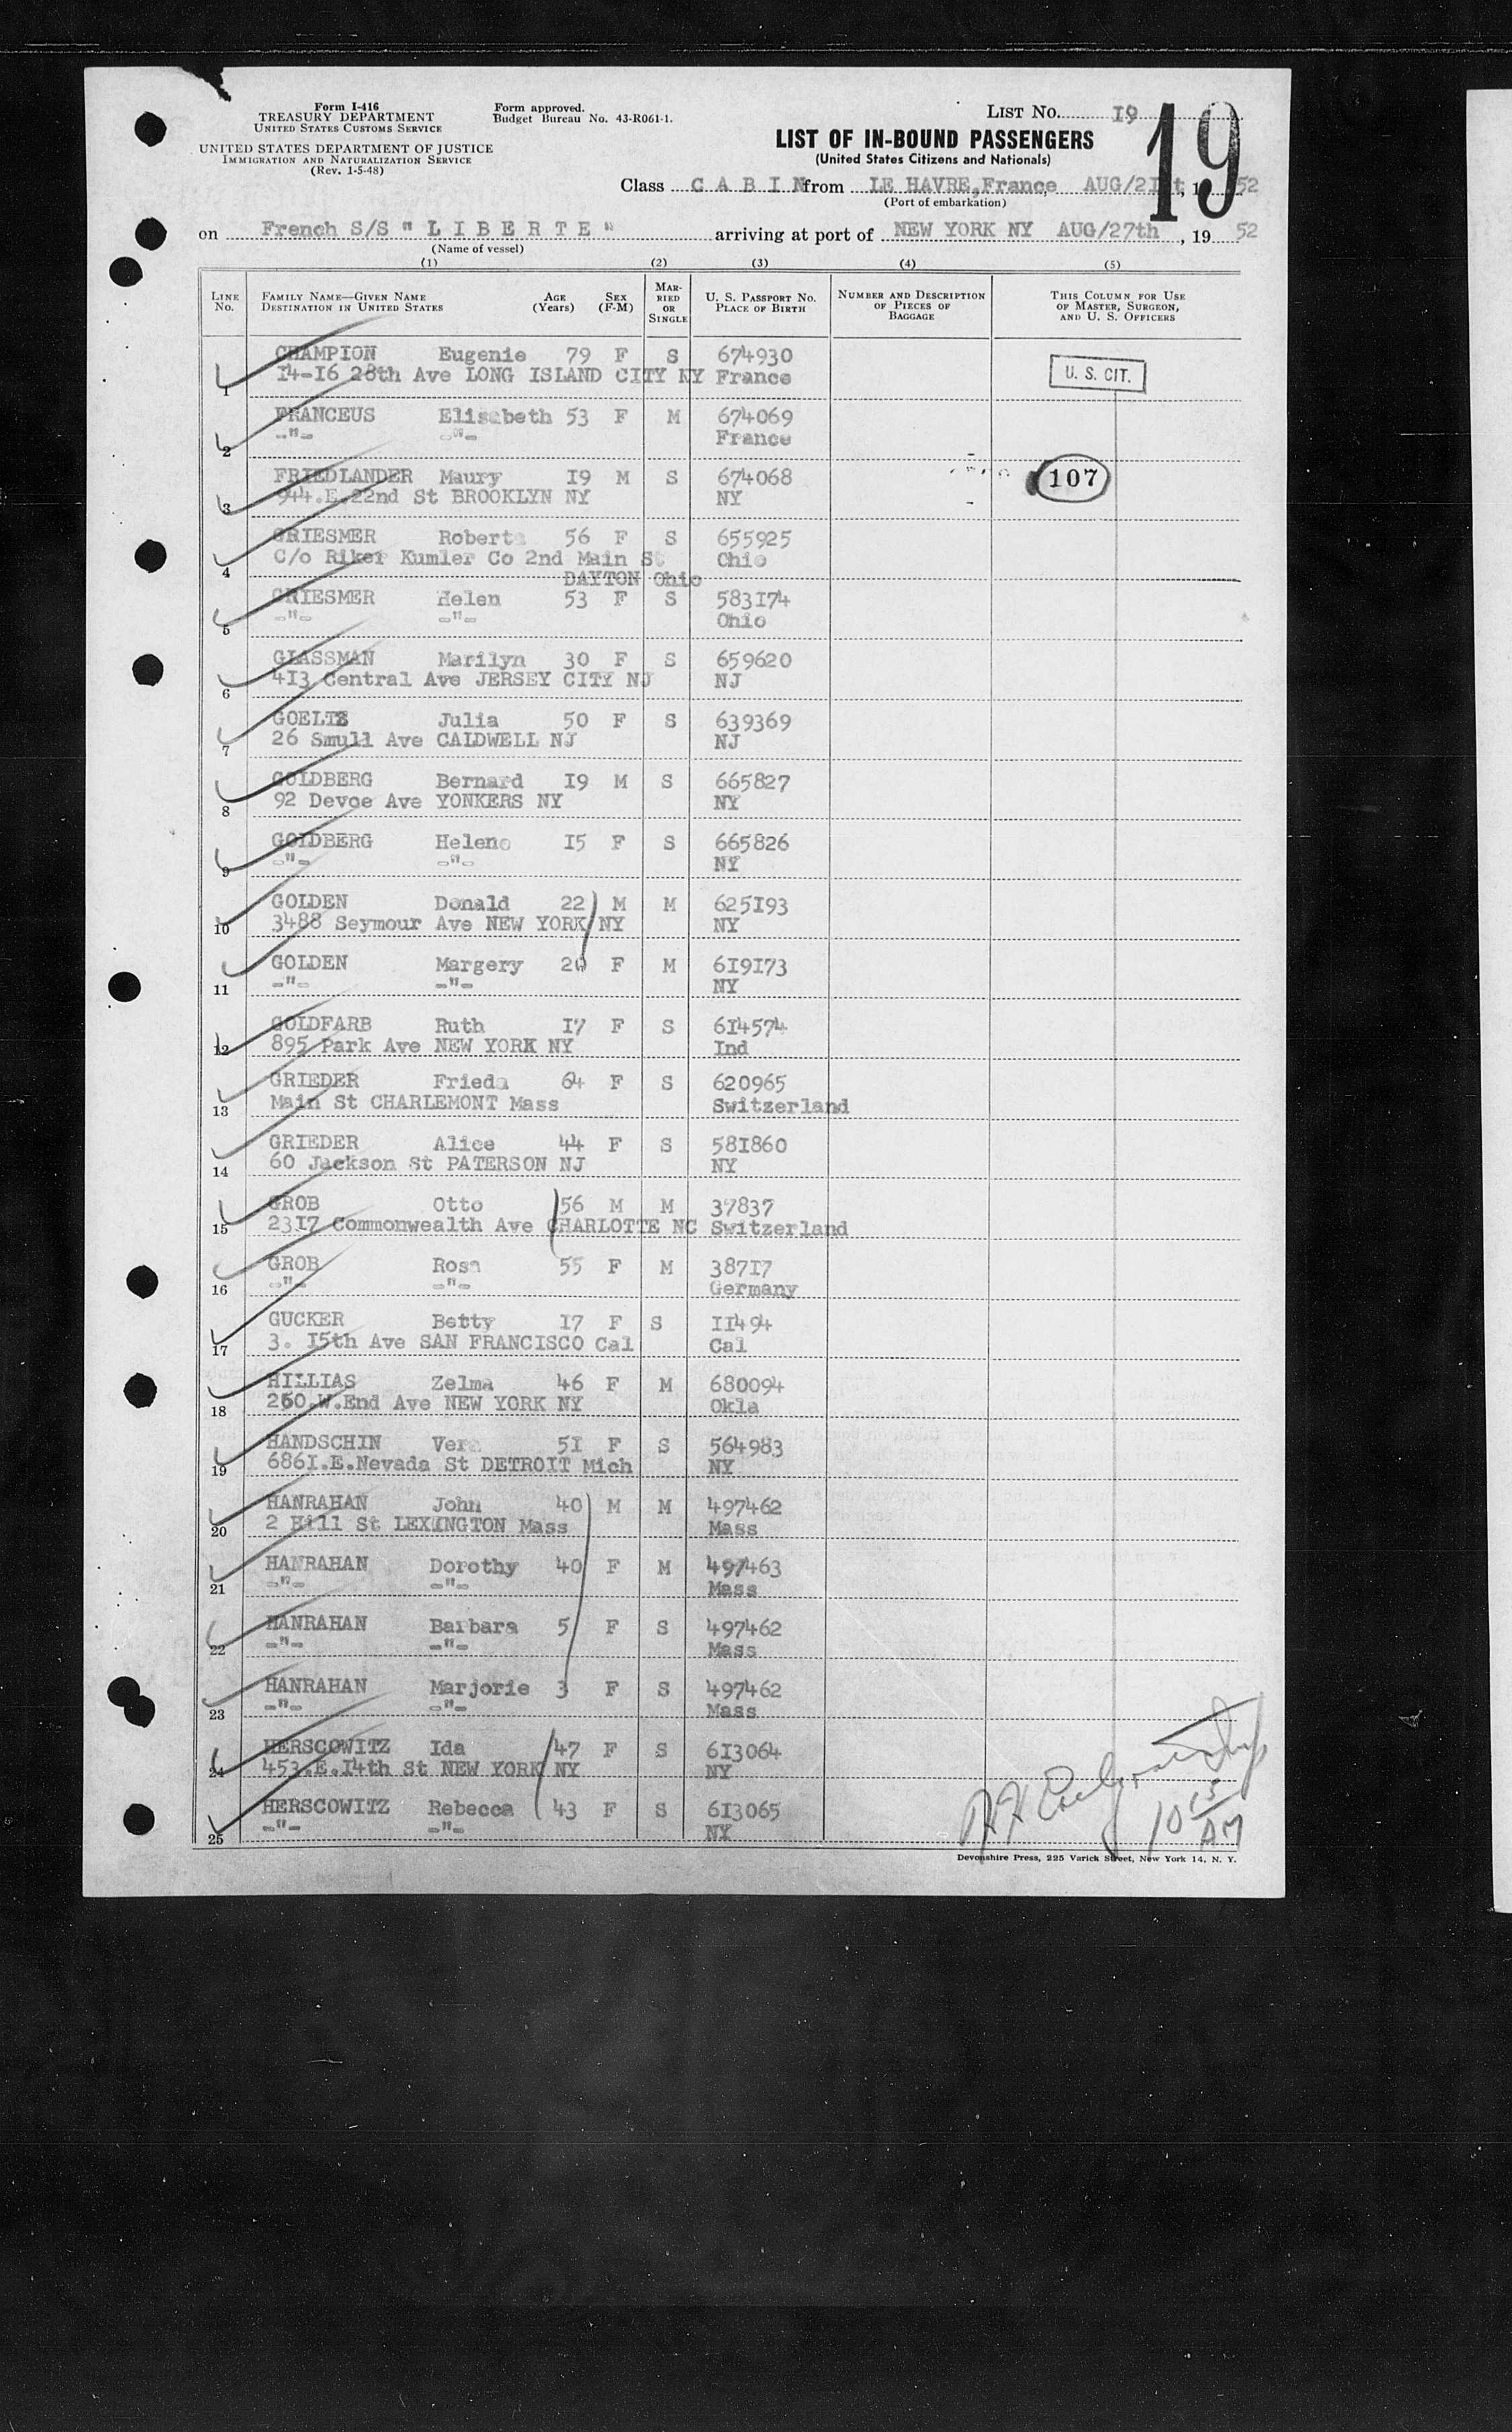 Form I-416
TREASURY DEPARTMENT
UNITED STATES CUSTOMS SERVICE
UNITED STATES DEPARTMENT OF JUSTICE
IMMIGRATION AND NATURALIZATION SERVICE
(Rev. 1-5-48)
Form approved.
Budget Bureau No. 43-R061-1.
LIST NO. 19
19
LIST OF IN-BOUND PASSENGERS
(United States Citizens and Nationals)
Class C A B I N from LE HAVRE, France, AUG/21st, 1952
(Port of embarkation)
on French S/S " L I B E R T E " arriving at port of NEW YORK NY AUG/27th, 19 52
(Name of vessel)
(1) (2) (3) (4) (5)
LINE NO. FAMILY NAME—GIVEN NAME DESTINATION IN UNITED STATES AGE (Years) SEX (F-M) MARRIED OR SINGLE U. S. PASSPORT NO. PLACE OF BIRTH NUMBER AND DESCRIPTION OF PIECES OF BAGGAGE THIS COLUMN FOR USE OF MASTER, SURGEON, AND U. S. OFFICERS
1 CHAMPION Eugenie 79 F S 674930
14-16 28th Ave LONG ISLAND CITY NY France
U. S. CIT.
2 FRANCEUS Elisabeth 53 F M 674069
-"- -"- France
3 FRIEDLANDER Maury 19 M S 674068
944.E.22nd St BROOKLYN NY NY
107
4 GRIESMER Roberta 56 F S 655925
C/o Riker Kumler Co 2nd Main St Ohio
DAYTON Ohio
5 GRIESMER Helen 53 F S 583174
-"- -"- Ohio
6 GLASSMAN Marilyn 30 F S 659620
413 Central Ave JERSEY CITY NJ NJ
7 GOELTZ Julia 50 F S 639369
26 Smull Ave CALDWELL NJ NJ
8 GOLDBERG Bernard 19 M S 665827
92 Devoe Ave YONKERS NY NY
9 GOLDBERG Helene 15 F S 665826
-"- -"- NY
10 GOLDEN Donald 22 M M 625193
3488 Seymour Ave NEW YORK NY NY
11 GOLDEN Margery 20 F M 619173
-"- -"- NY
12 GOLDFARB Ruth 17 F S 614574
895 Park Ave NEW YORK NY Ind
13 GRIEDER Frieda 64 F S 620965
Main St CHARLEMONT Mass Switzerland
14 GRIEDER Alice 44 F S 581860
60 Jackson St PATERSON NJ NY
15 GROB Otto 56 M M 37837
2317 Commonwealth Ave CHARLOTTE NC Switzerland
16 GROB Rosa 55 F M 38717
-"- -"- Germany
17 GUCKER Betty 17 F S 11494
3. 15th Ave SAN FRANCISCO Cal Cal
18 HILLIAS Zelma 46 F M 680094
260.W.End Ave NEW YORK NY Okla
19 HANDSCHIN Vera 51 F S 564983
6861.E.Nevada St DETROIT Mich NY
20 HANRAHAN John 40 M M 497462
2 Hill St LEXINGTON Mass Mass
21 HANRAHAN Dorothy 40 F M 497463
-"- -"- Mass
22 HANRAHAN Barbara 5 F S 497462
-"- -"- Mass
23 HANRAHAN Marjorie 3 F S 497462
-"- -"- Mass
24 HERSCOWITZ Ida 47 F S 613064
453.E.14th St NEW YORK NY NY
25 HERSCOWITZ Rebecca 43 F S 613065
-"- -"- NY
10 15 AM
Devonshire Press, 225 Varick Street, New York 14, N. Y.